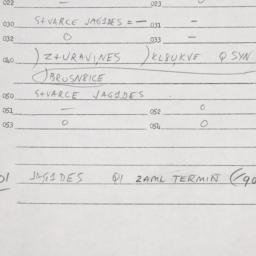 022 — 023
030 S+VARCE JAGIDES = — 031 —
032 O 033 —
040 ) Z+URAVINES ) KLBUKVE Q SYN
) BRUSNBICE
050 S+VARCE JAGIDES
051 — 052 O
053 O 054 O
01 JAGIDES Q1 ZAML TERMIN (/90